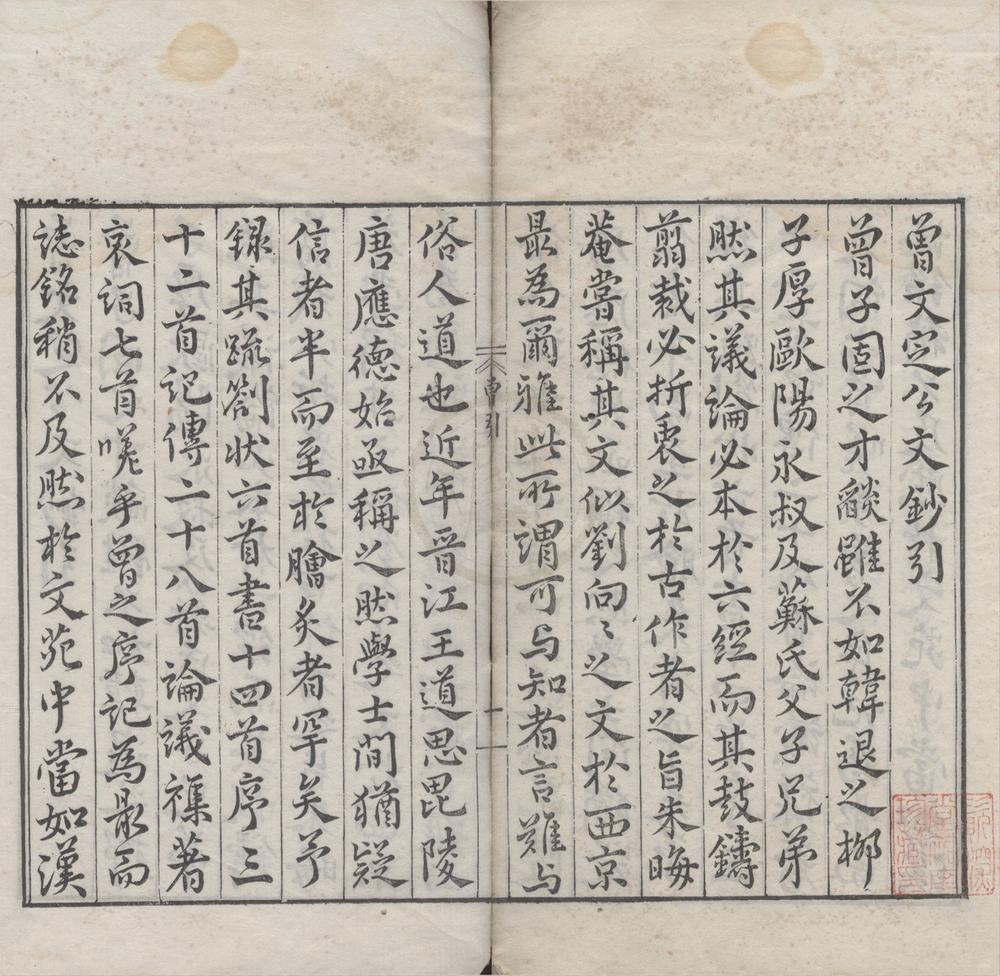 曾文定公文鈔引
曾子固之才𦦨雖不如韓退之柳
子厚歐陽永叔及蘇氏父子兄弟
然其議論必本於六經而其鼓鑄
剪裁必折衷之於古作者之旨朱晦
菴嘗稱其文似劉向向之文於西京
最為爾雅此所謂可與知者言難與
曾引
一
俗人道也近年晉江王道思毘陵
唐應德始亟稱之然學士間猶疑
信者半而至於膾炙者罕矣予
錄其疏劄狀六首書十四首序三
十二首記傳二十八首論議襍著
哀詞七首嗟乎曾之序記為最而
誌銘稍不及然於文苑中當如漢